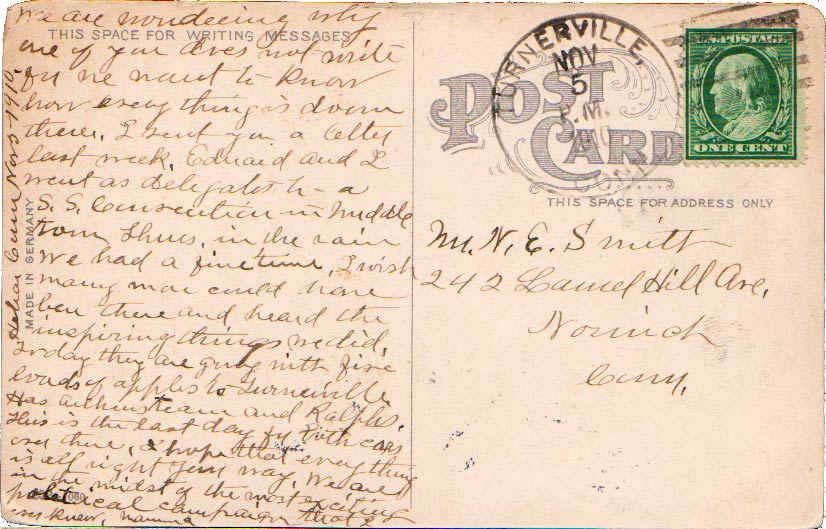 We are wondering why
THIS SPACE FOR WRITING MESSAGES
one of you does not write
for we want to know
how everything is down
there. I sent you a letter
last week. Edward and I
went as delegates to a
S. S. Convention in Middle
town Thurs. in the rain
We had a fine time, I wish
many more could have
been there and heard the
inspiring things we did.
Today they are going with five
loads of apples to Turnerville
Has Arthurs team and Ralphs.
This is the last day for both cars
over there. I hope that everything
is all right your way. We are
in the midst of the most exciting
political campaign that I
ever knew. mamma
Conn Nov 5 - 1910
MADE IN GERMANY
TURNERVILLE,
NOV
5
P.M.
CONN
POST
CARD
U.S. POSTAGE
ONE CENT
THIS SPACE FOR ADDRESS ONLY
Mr. N. E. Smith
242 Laurel Hill Ave,
Norwich
Conn.